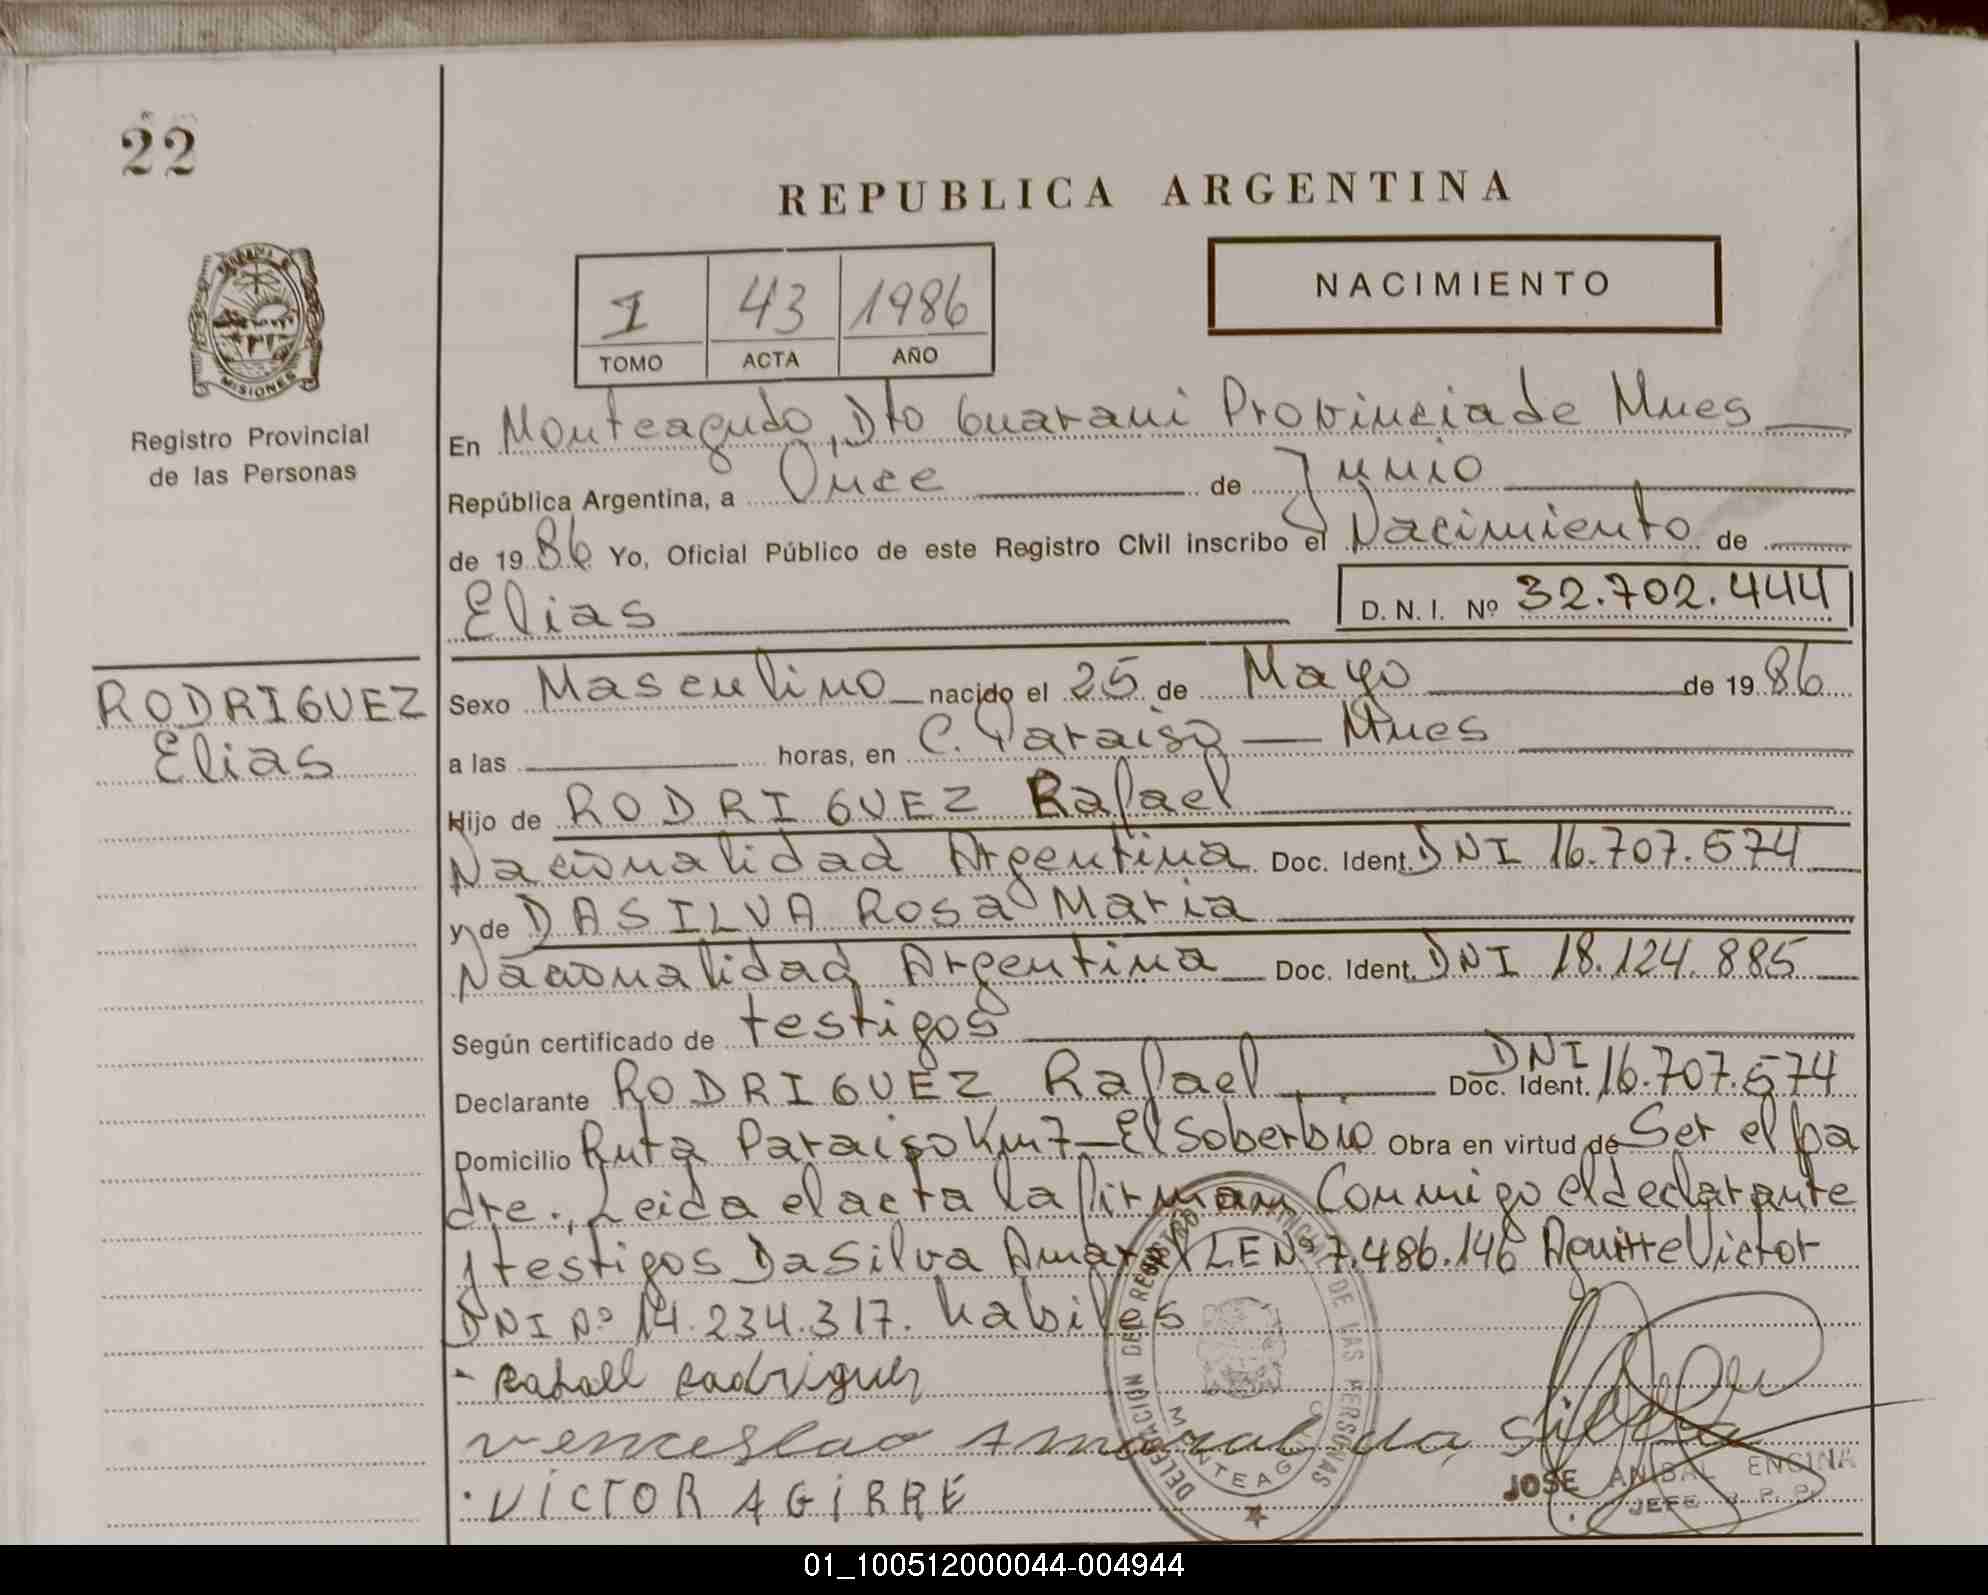 22
REPUBLICA ARGENTINA
NACIMIENTO
I 43 1986
TOMO ACTA AÑO
MISIONES
Registro Provincial
de las Personas
En Monteagudo, Dto Guarani Provincia de Mnes
República Argentina, a Once de Junio
de 1986 Yo, Oficial Público de este Registro Civil inscribo el Nacimiento de
Elias D.N.I. Nº 32.702.444
RODRIGUEZ
Elias
Sexo Masculino nacido el 25 de Mayo de 1986
a las horas, en C. Paraiso — Mnes
Hijo de RODRIGUEZ Rafael
Nacionalidad Argentina Doc. Ident. DNI 16.707.574
y de DASILVA Rosa Maria
Nacionalidad Argentina Doc. Ident. DNI 18.124.885
Según certificado de testigos
Declarante RODRIGUEZ Rafael Doc. Ident. DNI 16.707.574
Domicilio Ruta Paraiso Km 7 — El Soberbio Obra en virtud de Ser el pa
dre., Leida el acta la firman Conmigo el declarante
y testigos Da Silva Amaral LE Nº 7.486.146 Aguirre Victor
DNI Nº 14.234.317. habiles
- Rafaell Rodriguez
venceslao Amaral da silva
. VICTOR AGIRRE
DELEGACION DEL REGISTRO PROVINCIAL DE LAS PERSONAS
MONTEAGUDO
JOSE ANIBAL ENCINA
JEFE R. P. P.
01_100512000044-004944